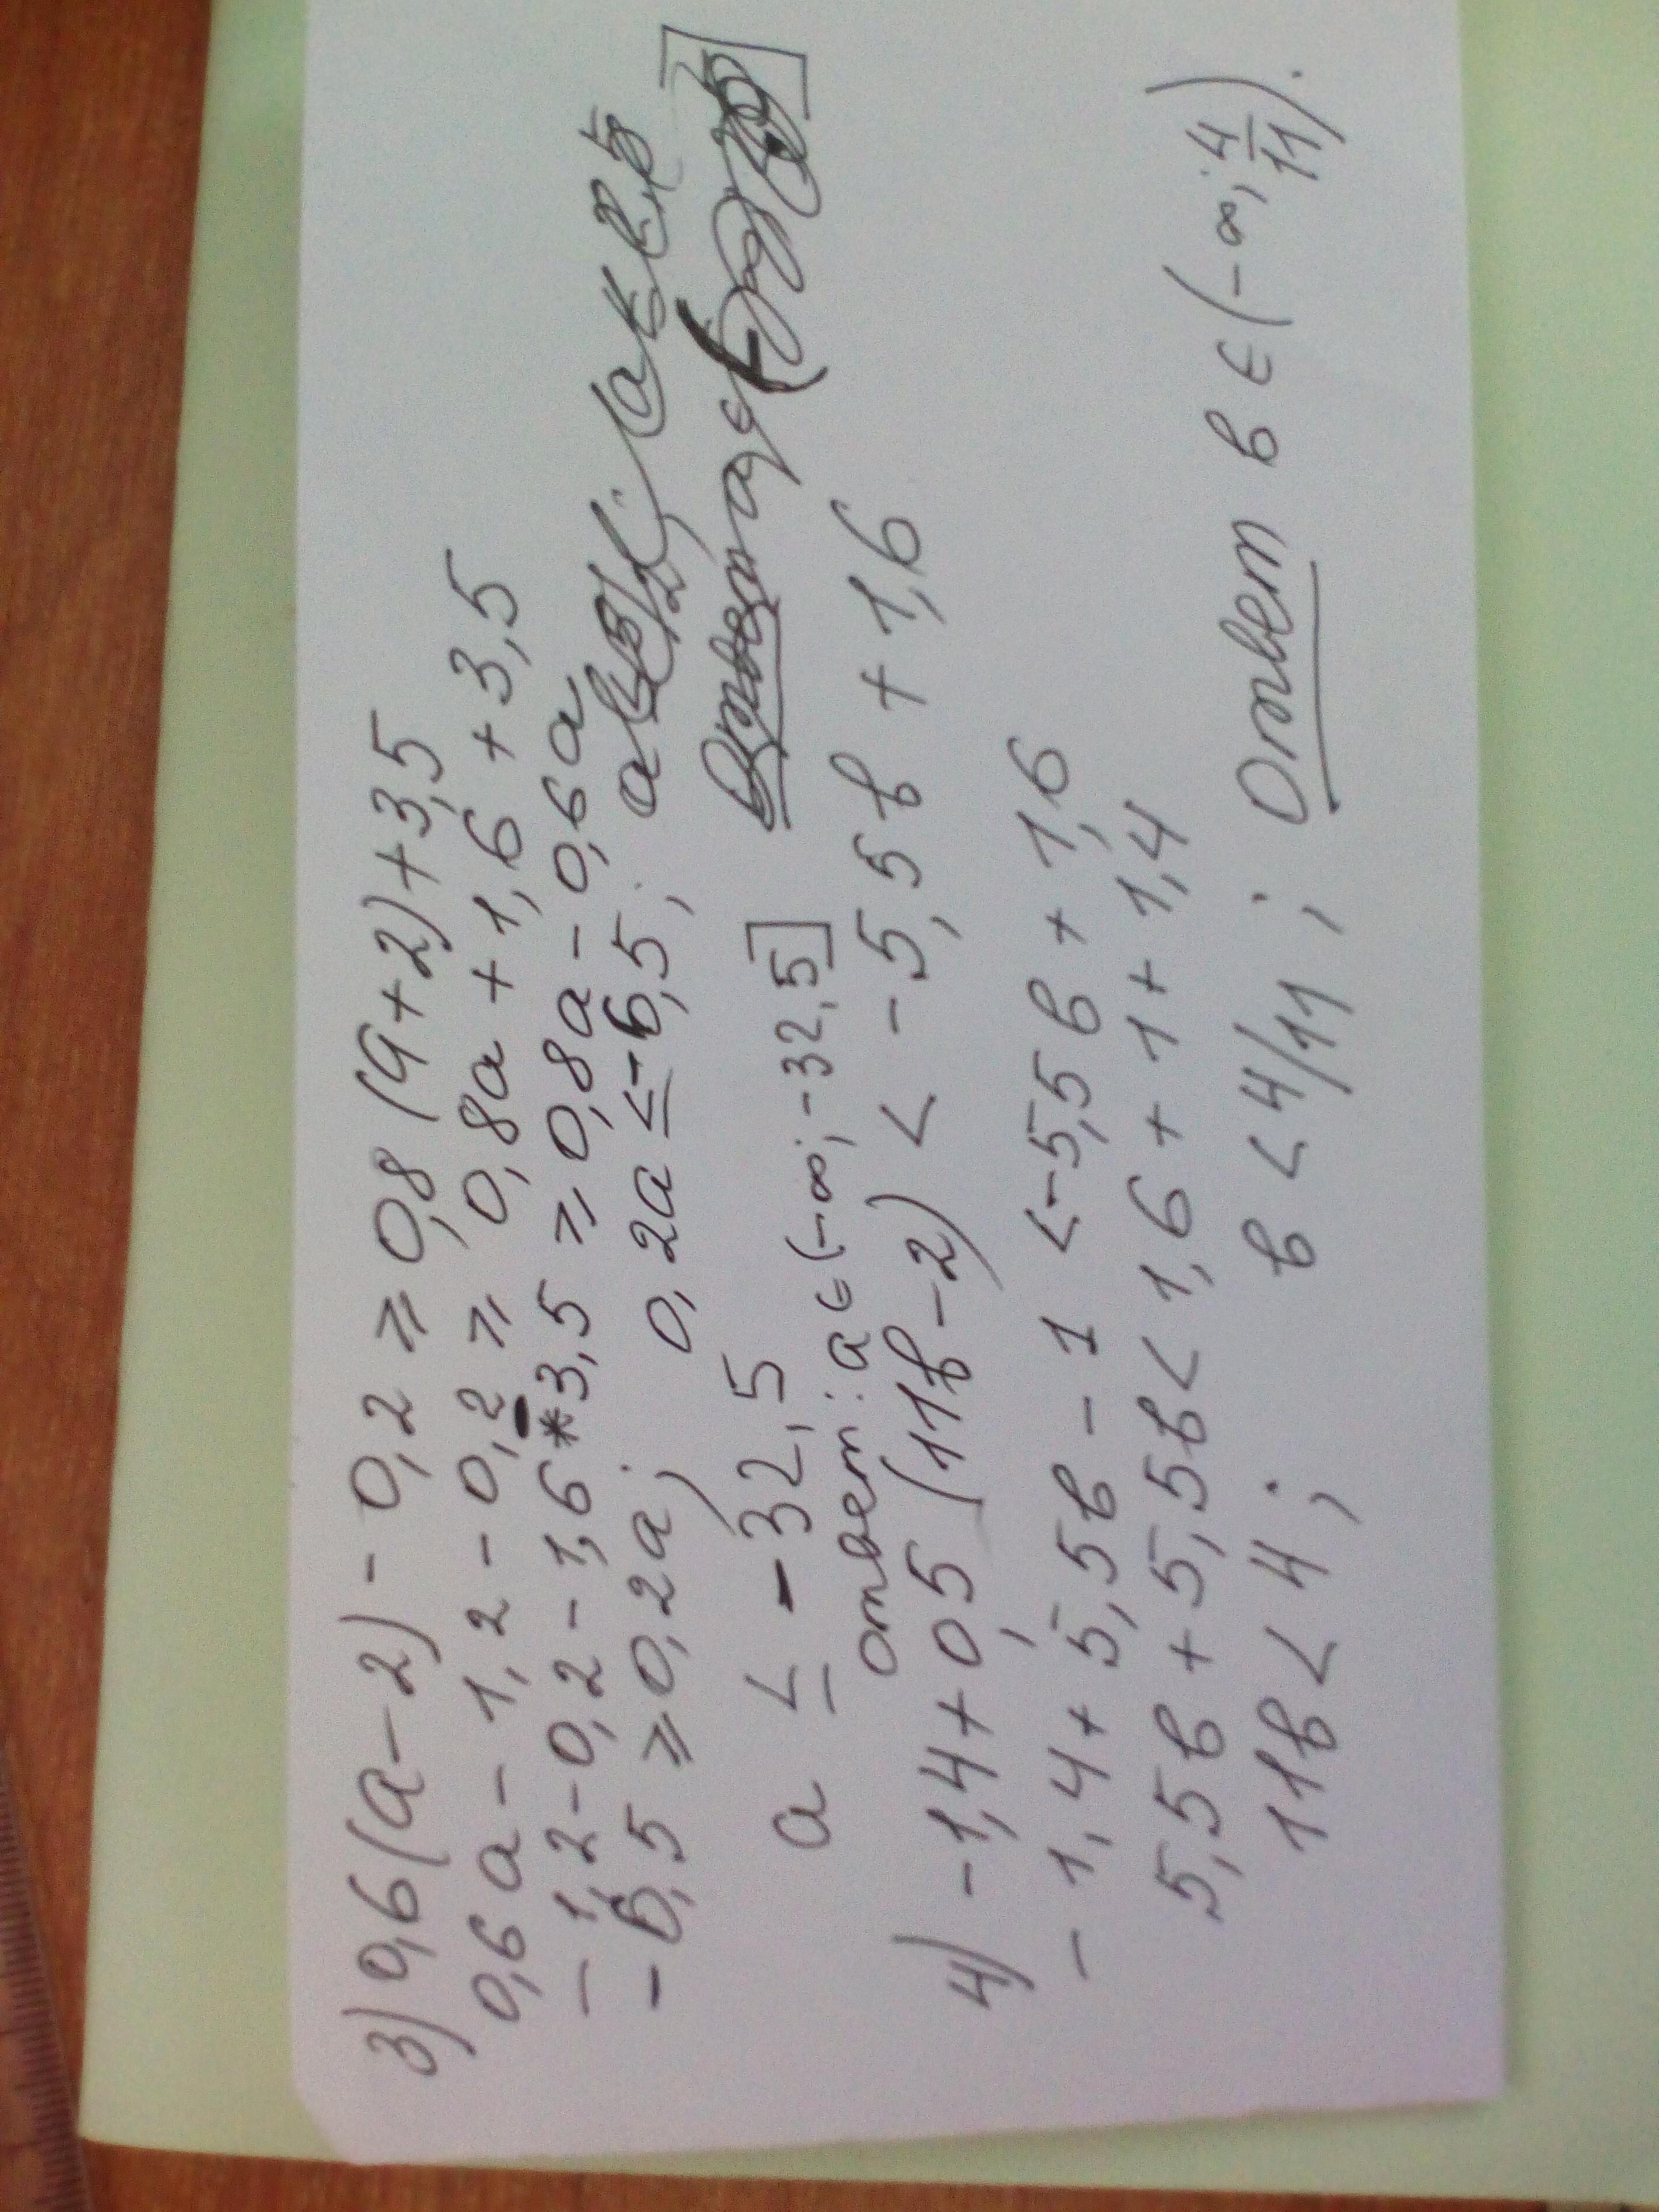 3) 0,6(a-2)-0,2 ⩾ 0,8(a+2)+3,5
0,6a-1,2-0,2 ⩾ 0,8a+1,6+3,5
-1,2-0,2-1,6*3,5 ⩾ 0,8a-0,6a
-6,5 ⩾ 0,2a; 0,2a ≤ -6,5;
a ≤ -32,5
ответ: a ∈ (-∞; -32,5]
4) -1,4+0,5(11в-2) < -5,5в+1,6
-1,4+5,5в-1 < -5,5в+1,6
5,5в+5,5в < 1,6+1+1,4
11в < 4; в < 4/11; Ответ в ∈ (-∞; 4/11).